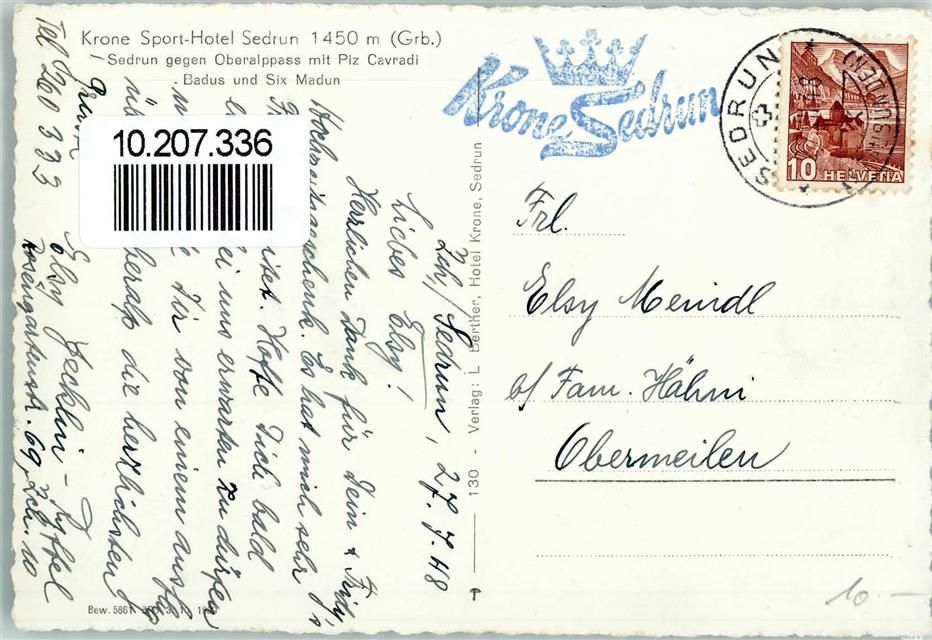 Krone Sport-Hotel Sedrun 1450 m (Grb.)
Sedrun gegen Oberalppass mit Piz Cavradi
Badus und Six Madun
10.207.336
Krone Sedrun
SEDRUN
10 HELVETIA
Zch./Sedrun, 27.7.48
Liebes Elsy!
Herzlichen Dank für Dein
Hochzeitsgeschenk. Es hat mich sehr
Hoffe Dich bald
bei uns erwarten zu dürfen
Dir von einem
Oberalp die herzlichsten
Elsy Jecklin-Zyffel
Rosengartenstr. 69, Zch. 10
Tel 260323
130 - Verlag: L. Berther, Hotel Krone, Sedrun
Frl.
Elsy Meindl
b/ Fam. Hähni
Obermeilen
Bew. 5861
10.-